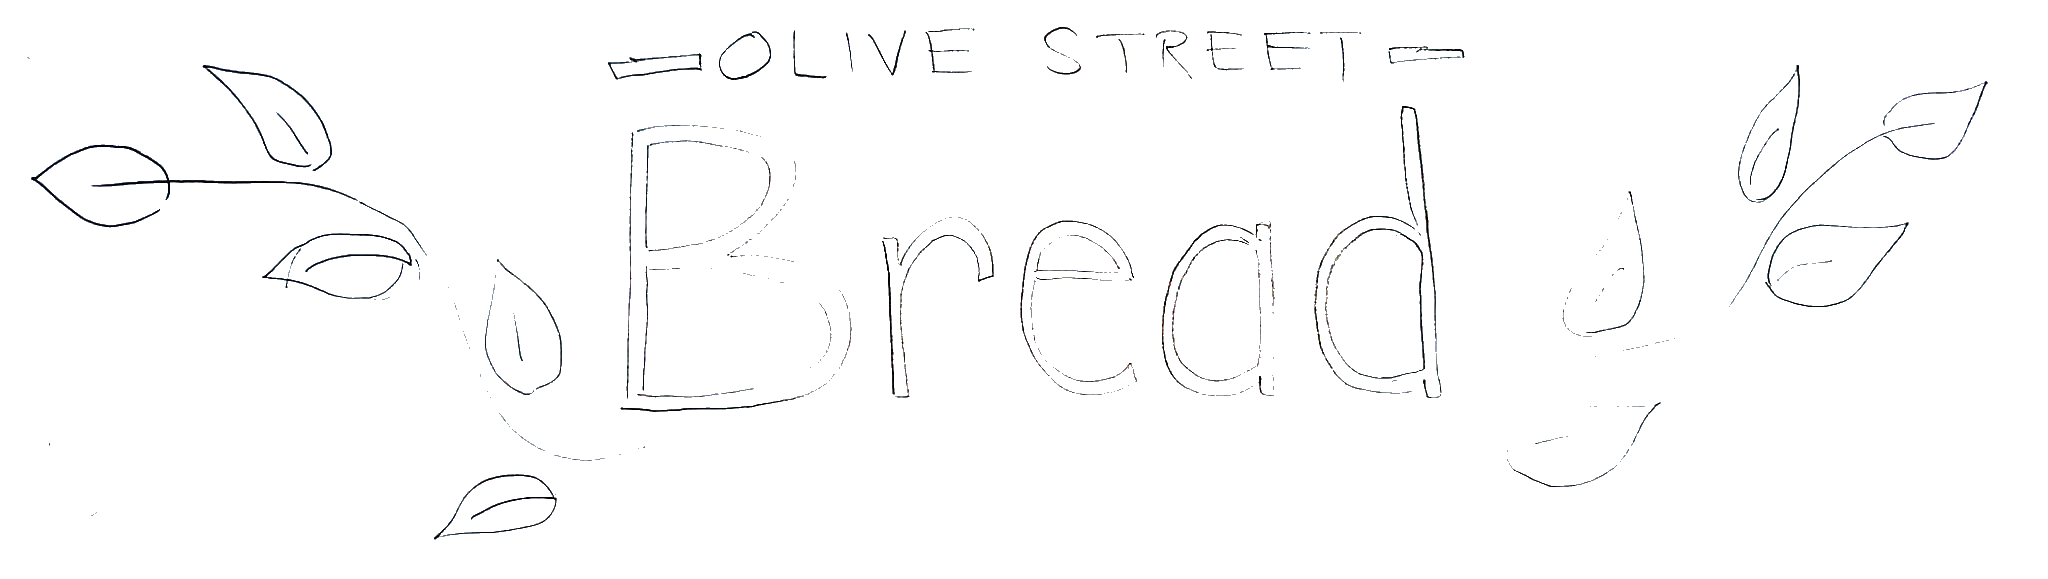 OLIVE STREET
Bread